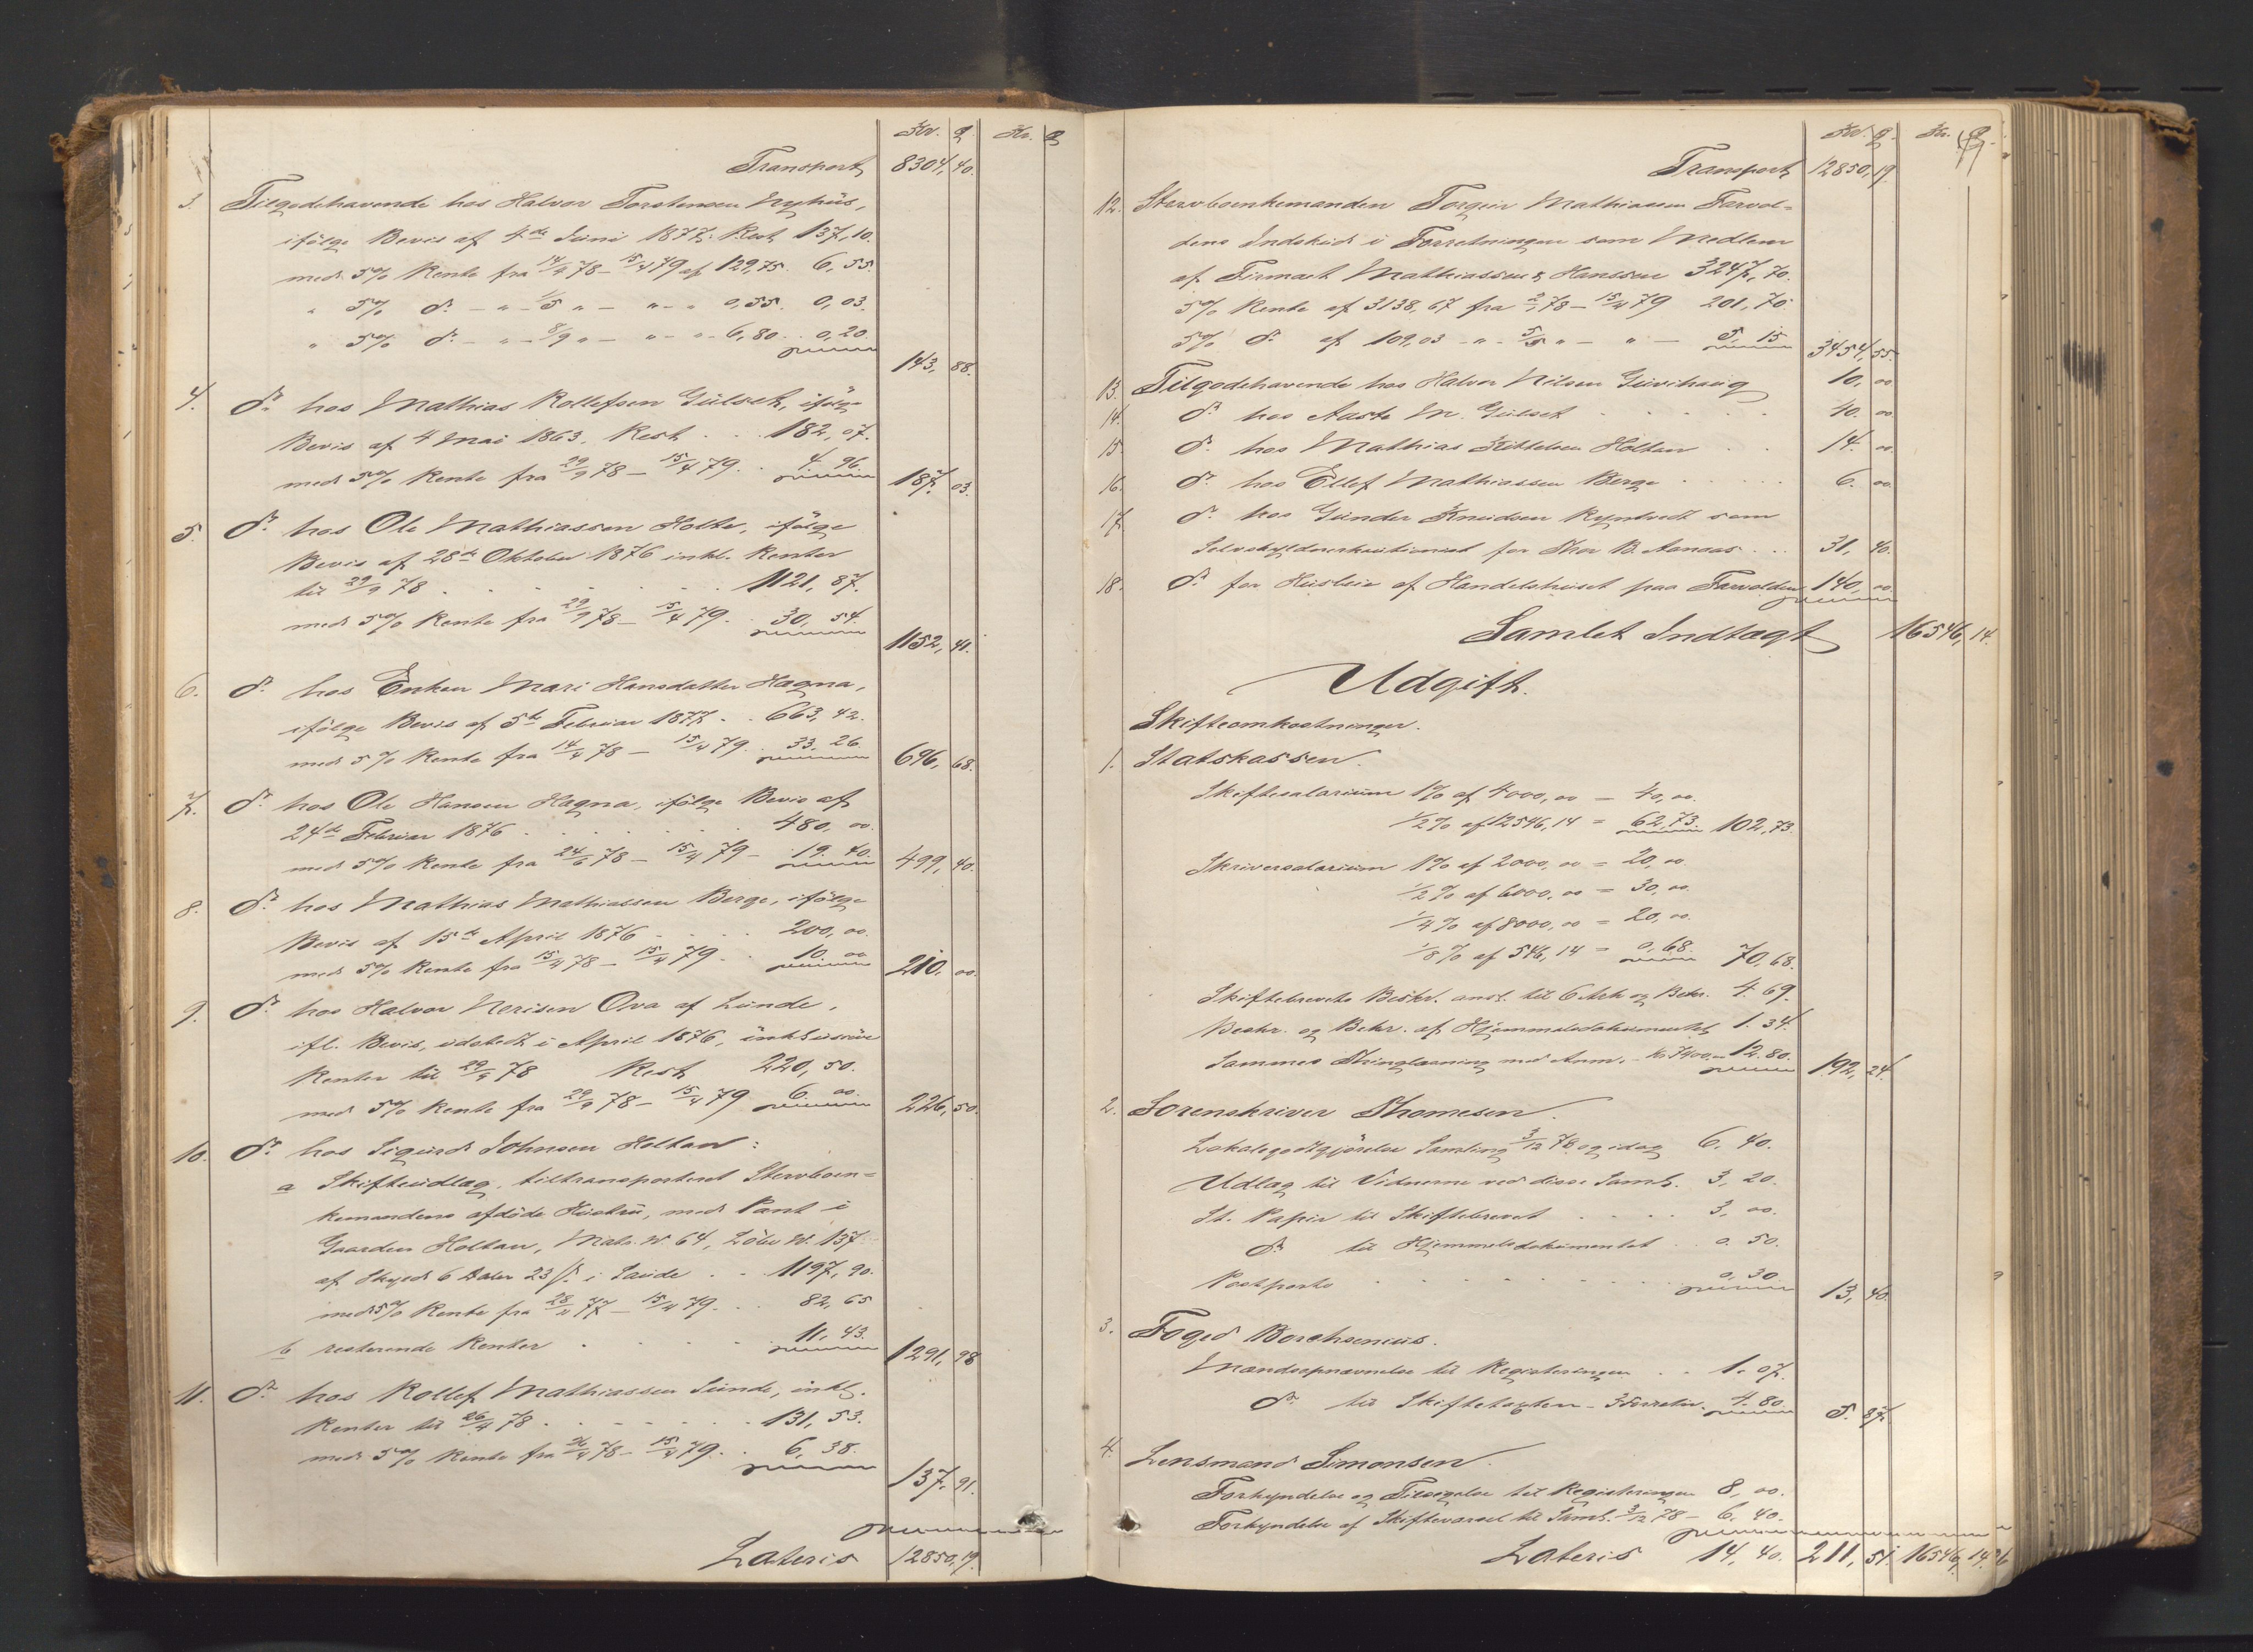 Kr. Ø. Kr. Ø
Transport 8304, 40.
3. Tilgodehavende hos Halvor Torstensen Nyhüs,
ifölge Bevis af 4de Jüni 1877. Rest 137,10.
med 5% Rente fra 14/4 78 – 15/4 79 af 129,75. 6,55.
" 5% do – " – 1/5 " – " – " 0,55. 0,03.
" 5% do – " – 8/9 " – " – " – 6,80. 0,20.
143, 88.
4. do hos Mathias Rollefsen Gülset, ifölge
Bevis af 4 Mai 1863. Rest 182, 07.
med 5% Rente fra 29/9 78 – 15/4 79. 4. 96.
187. 03.
5. do hos Ole Mathiassen Holte, ifölge
Bevis af 28de Oktober 1876 inkl. Renter
til 29/9 78 1121, 87.
med 5% Rente fra 29/9 78 – 15/4 79. 30, 54.
1152, 41.
6. do hos Enken Mari Hansdatter Hagna,
ifölge Bevis af 5te Februar 1877. 663, 42.
med 5% Rente fra 14/4 78 – 15/4 79. 33. 26.
696, 68.
7. do hos Ole Hansen Hagna, ifölge Bevis af
24de Februar 1876 480, 00.
med 5% Rente fra 24/6 78 – 15/4 79 – 19. 40. 499, 40.
8. do hos Mathias Mathiassen Berge, ifölge
Bevis af 15de April 1876 200, 00.
med 5% Rente fra 15/4 78 – 15/4 79. 10. 00 210, 00.
9. do hos Halvor Nerisen Ova af Lünde,
ifl. Bevis, udstedt i April 1876, inklüsive
Renter til 29/9 78 Rest 220, 50.
med 5% Rente fra 29/9 78 – 15/4 79 6. 00. 226, 50.
10. do hos Sigurd Johnsen Holtan:
a Skifteudlæg, tiltransporteret Stervboen-
kemandens afdöde Hüstrü, med Pant i
Gaarden Holtan, Matr. No. 64, Löbe No. 137
af Skyld 6 Daler 23 ß. i Saüde 1197, 90.
med 5% Rente fra 28/11 77 – 15/4 79. 82, 65
b resterende Renter 11, 43. 1291, 98
11. do hos Rollef Mathiassen Sünde, inkl.
Renter til 26/4 78 131, 53.
med 5% Rente fra 26/4 78 – 15/4 79. 6, 38.
137. 91.
Lateris 12850, 19.
Kr. Ø. Kr. Ø.
Transport 12850, 19.
12. Stervboenkemanden Torgeir Mathiassen Farvol-
dens Indskud i Forretningen som Medlem
af Firmaet Mathiassen & Hanssen 3247, 70.
5% Rente af 3138,67 fra 2/1 78 – 15/4 79 201, 70.
5% do af 109,03 – " – 5/5 " – " – 5, 15
3454, 55.
13. Tilgodehavende hos Halvor Nilsen Güvihaüg 10, 00
14. do hos Aaste M. Gülset 40. 00.
15. do hos Mathias Kittelsen Holtan 14. 00.
16. do hos Ellef Mathiassen Berge 6. 00.
17. do hos Günder Knüdsen Ryntvedt som
Selvskyldnerkautionist for Thor B. Aanaas 31, 40.
18. do for Hüsleie af Handelshüset paa Farvolden 140, 00.
Samlet Indtægt 16546, 14.
Udgift.
Skifteomkostninger.
1. Statskassen.
Skiftesalarium 1% af 4000, 00 = 40, 00.
1/2% af 12546, 14 = 62,73. 102, 73.
Skriversalarium 1% af 2000, 00 = 20, 00.
1/2% af 6000, 00 = 30, 00.
1/4% af 8000, 00 = 20, 00.
1/8% af 546, 14 = 0,68. 70, 68.
Skiftebrevets Beskr. ansl. til 6 Ark og Bekr. 4. 69.
Beskr. og Bekr. af Hjemmelsdokumentet 1. 34.
Sammes Thinglæsning med Anm. – Kr. 7400, – 12. 80. 192, 24.
2. Sorenskriver Thomesen.
Lokalegodtgjörelse Samling 3/12 78 og idag 6. 40.
Udlæg til Vidnerne ved disse Saml. 3, 20.
St. Papir til Skiftebrevet 3, 00.
do til Hjemmelsdokumentet 0. 50.
Postporto 0, 30
13, 40.
3. Foged Borchsenius.
Mandsopnævnelse til Registeringen 1. 07.
do til Skiftetaxten – 3 Forretn. 4. 80.
5. 87.
4. Lensmand Simonsen.
Forkyndelse og Tilsigelse til Registeringen 8, 00.
Forkyndelse af Skiftevarsel til Saml. 3/12 78 – 6. 40.
Lateris 14, 40. 211, 51. 16546, 14.